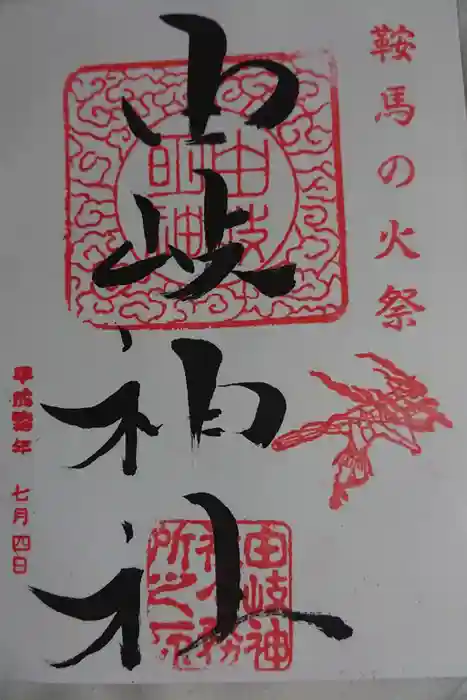 鞍馬の火祭
由岐神社
由岐神社
由岐神社社務所之印
七月四日